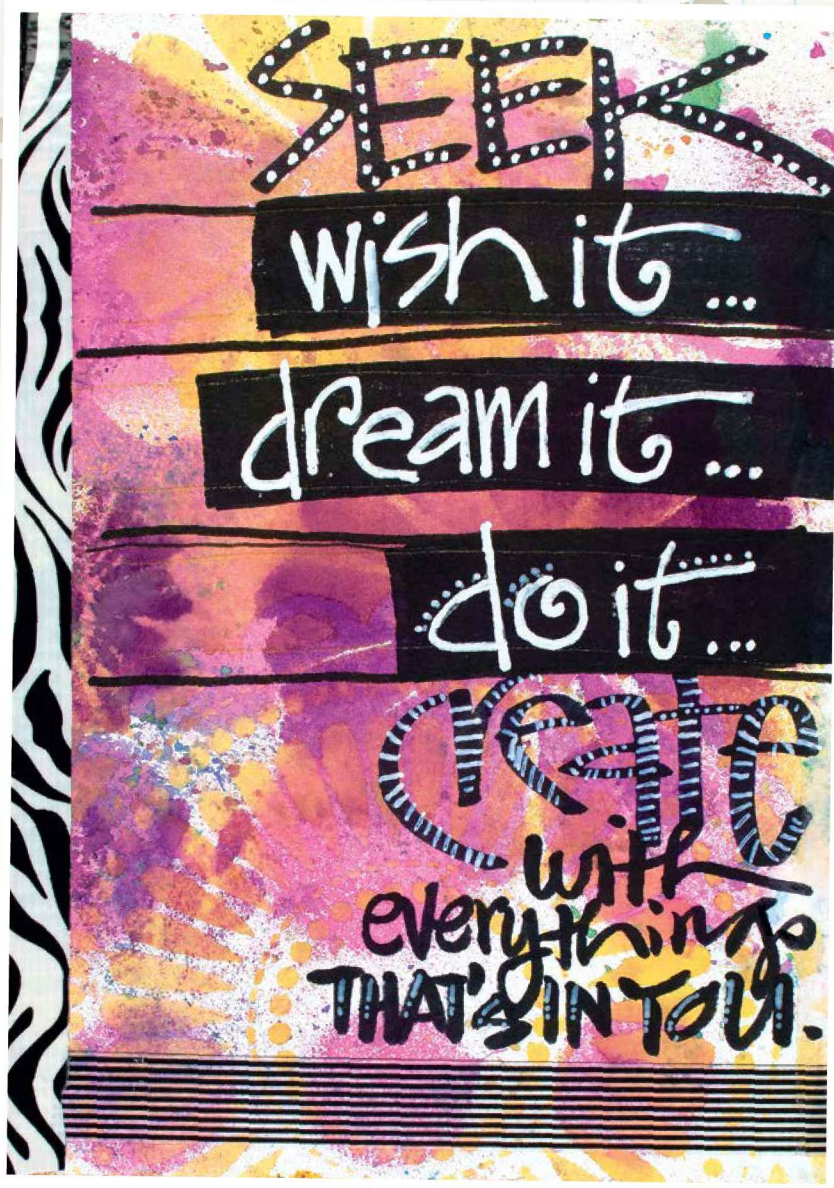 SEEK
wish it...
dream it...
do it...
create
with
everything
THAT'S IN YOU.